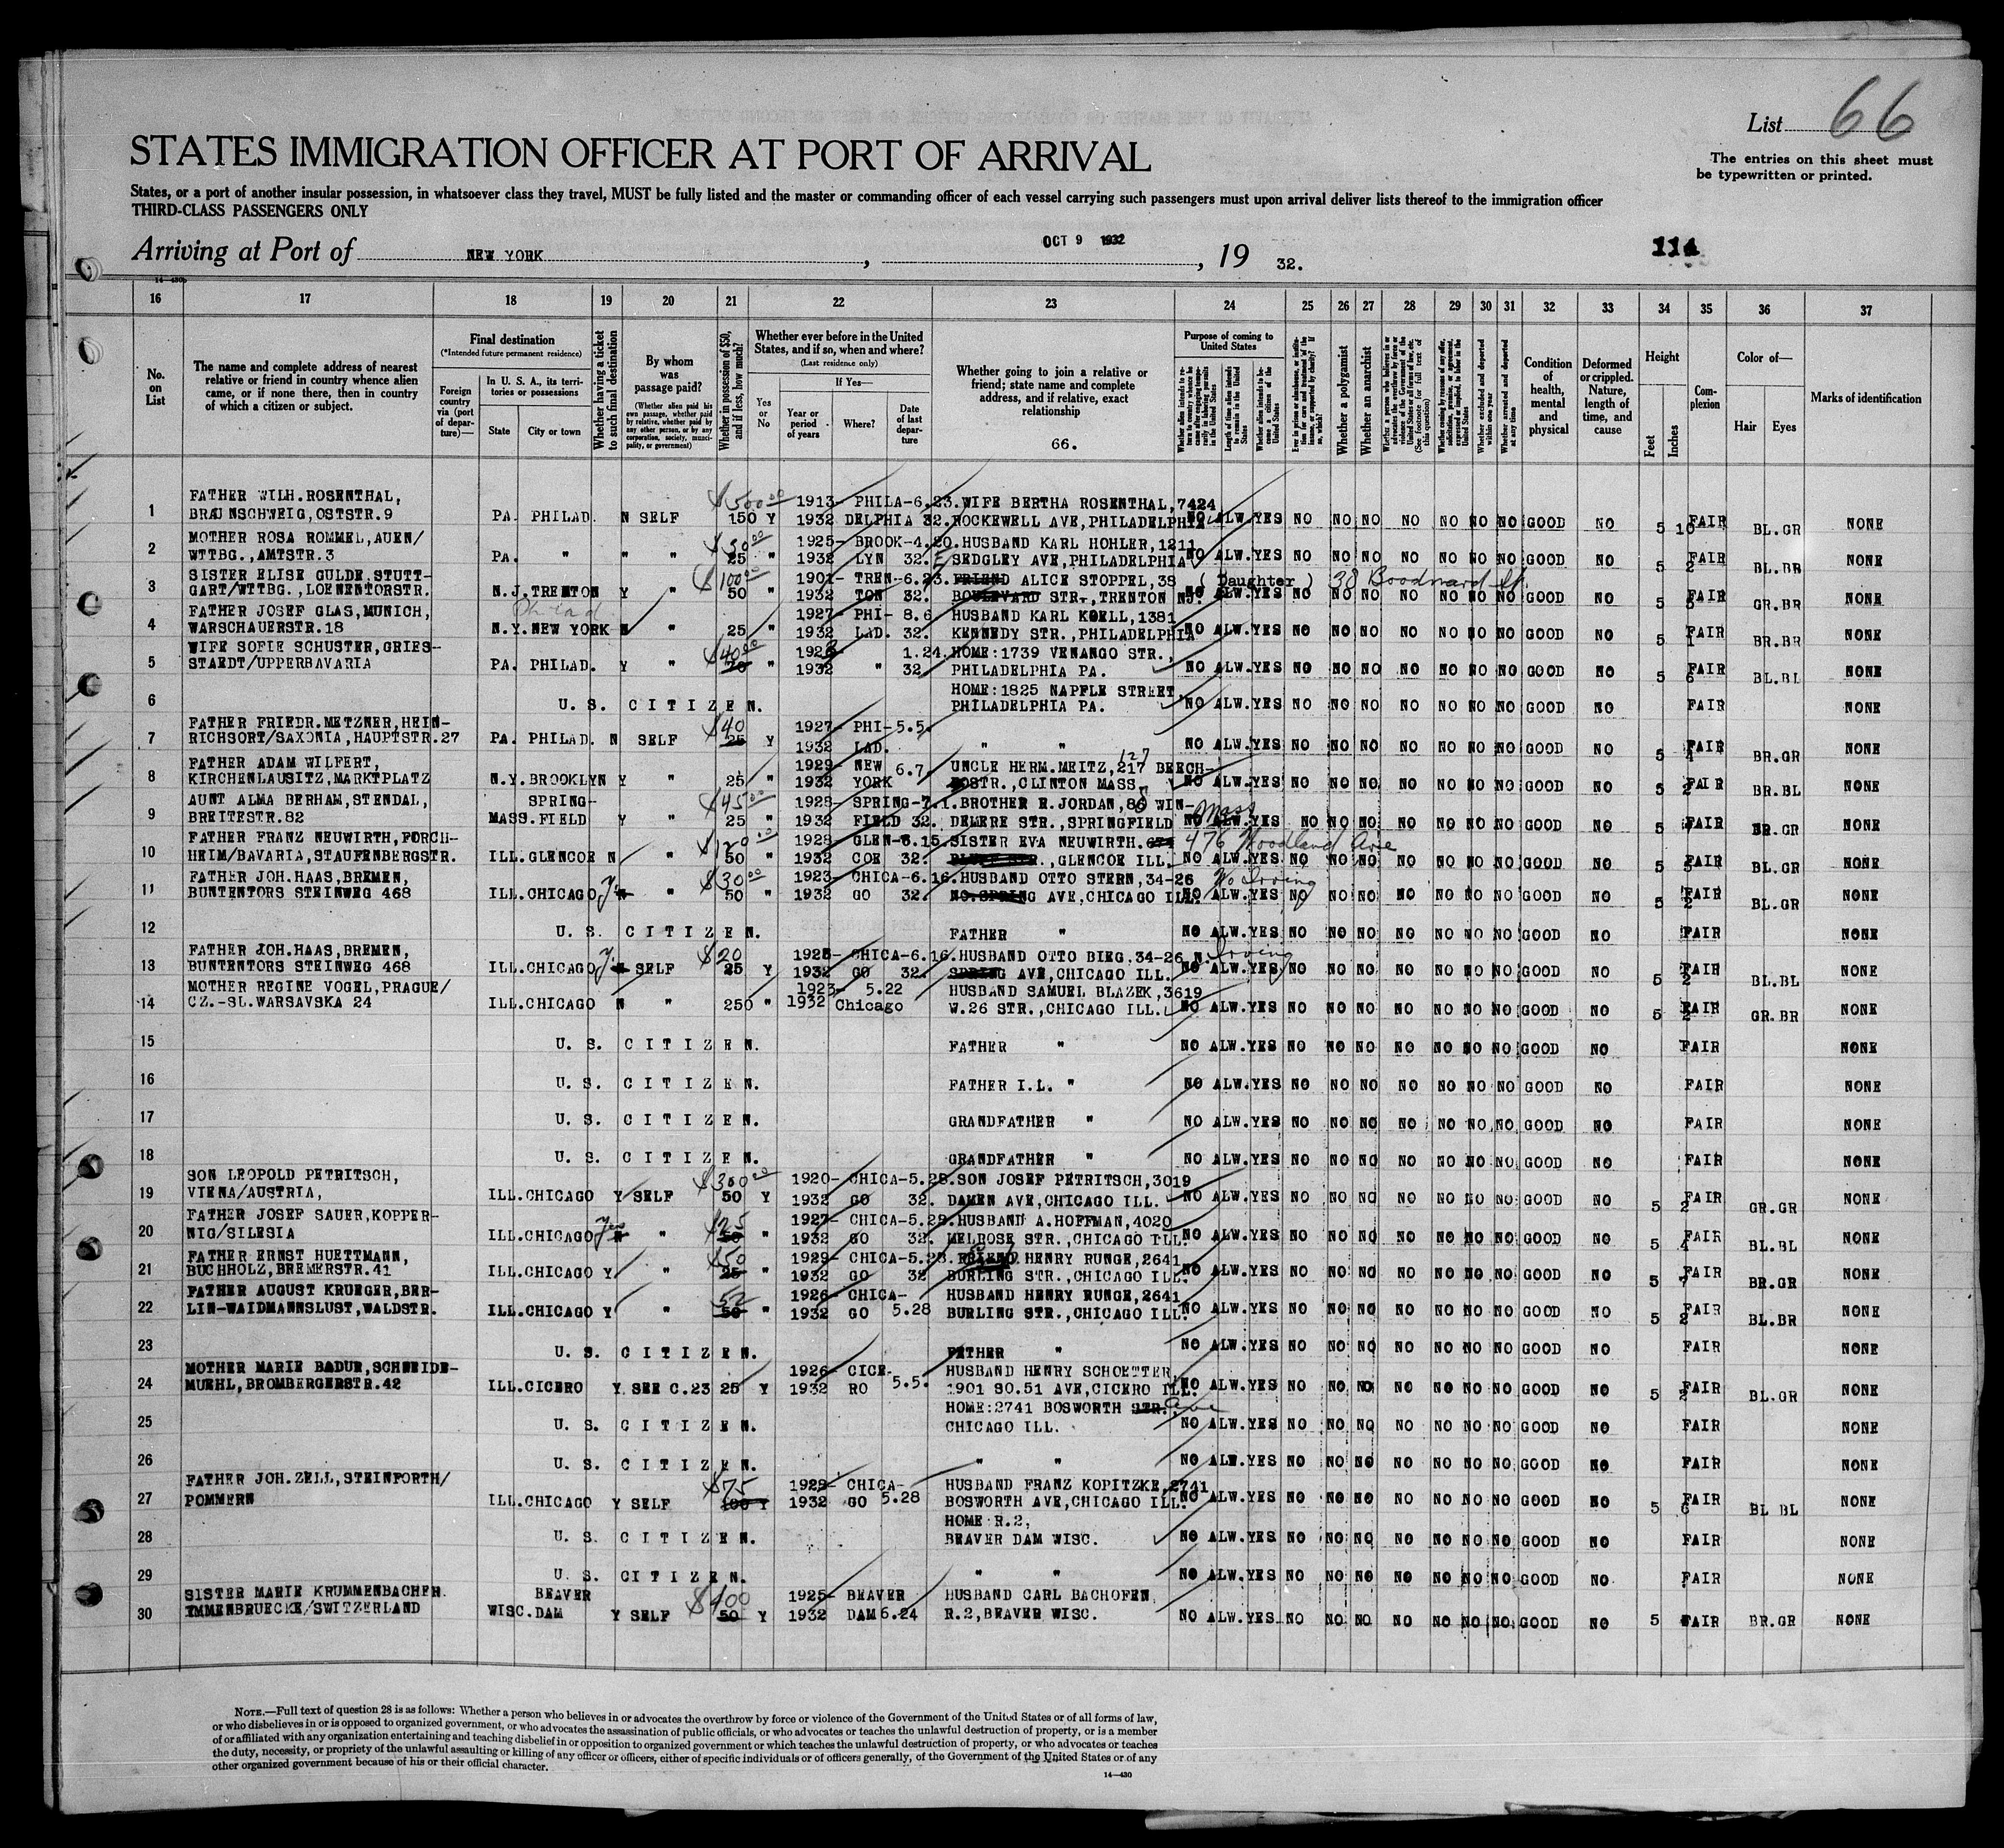 List 66
The entries on this sheet must
be typewritten or printed.
STATES IMMIGRATION OFFICER AT PORT OF ARRIVAL
States, or a port of another insular possession, in whatsoever class they travel, MUST be fully listed and the master or commanding officer of each vessel carrying such passengers must upon arrival deliver lists thereof to the immigration officer
THIRD-CLASS PASSENGERS ONLY
Arriving at Port of NEW YORK, OCT 9 1932, 19 32.
114
16 17 18 19 20 21 22 23 24 25 26 27 28 29 30 31 32 33 34 35 36 37
No. on List
The name and complete address of nearest relative or friend in country whence alien came, or if none there, then in country of which a citizen or subject.
Final destination
(*Intended future permanent residence)
Foreign country via (port of departure)—
In U. S. A., its territories or possessions
State
City or town
Whether having a ticket to such final destination
By whom was passage paid?
(Whether alien paid his own passage, whether paid by relative, whether paid by any other person, or by any corporation, society, municipality, or government)
Whether in possession of $50, and if less, how much?
Whether ever before in the United States, and if so, when and where?
(Last residence only)
Yes or No
If Yes—
Year or period of years
Where?
Date of last departure
Whether going to join a relative or friend; state name and complete address, and if relative, exact relationship
66.
Purpose of coming to United States
Length of time alien intends to remain in the United States
Whether alien intends to become a citizen of the United States
Whether a polygamist
Whether an anarchist
(See footnote for full text of this question)
Whether excluded and deported within one year
Whether arrested and deported at any time
Condition of health, mental and physical
Deformed or crippled. Nature, length of time, and cause
Height
Feet
Inches
Complexion
Color of—
Hair
Eyes
Marks of identification
1 FATHER WILH.ROSENTHAL, $500.00 1913- PHILA-6.23. WIFE BERTHA ROSENTHAL,7424
BRAUNSCHWEIG,OSTSTR.9 PA. PHILAD. N SELF 150 Y 1932 DELPHIA 32. ROCKEWELL AVE,PHILADELPHIA NO ALW. YES NO NO NO NO NO NO NO GOOD NO 5 10 FAIR BL.GR NONE
2 MOTHER ROSA ROMMEL,AUEN/ $30.00 1925- BROOK-4.20. HUSBAND KARL HOHLER,1211
WTTBG.,AMTSTR.3 PA. " " " 25 " 1932 LYN 32. E SEDGLEY AVE,PHILADELPHIA NO ALW. YES NO NO NO NO NO NO NO GOOD NO 5 2 FAIR BL.BR NONE
3 SISTER ELISE GULDE,STUTT- $100.00 1901- TREN-6.23. FRIEND ALICE STOPPEL,38 (Daughter) 38 Boodward St.
GART/WTTBG.,LOENENTORSTR. N.J.TRENTON Y " 50 " 1932 TON 32. BOULEVARD STR-,TRENTON NJ. NO ALW. YES NO NO NO NO NO NO NO GOOD NO 5 5 FAIR GR.BR NONE
4 FATHER JOSEF GLAS,MUNICH, Philad 1927- PHI- 8.6 HUSBAND KARL KOELL,1381
WARSCHAUERSTR.18 N.Y.NEW YORK N " 25 " 1932 LAD. 32. KENNEDY STR.,PHILADELPHIA NO ALW. YES NO NO NO NO NO NO NO GOOD NO 5 1 FAIR BR.BR NONE
5 WIFE SOFIE SCHUSTER,GRIES- $40.00 1.24. HOME:1739 VENANGO STR.,
STAEDT/UPPERBAVARIA PA. PHILAD. Y " " 1932 " 32 PHILADELPHIA PA. NO ALW. YES NO NO NO NO NO NO NO GOOD NO 5 6 FAIR BL.BL NONE
HOME:1825 NAPFLE STREET,
6 U. S. CITIZEN. PHILADELPHIA PA. NO ALW. YES NO NO NO NO NO NO NO GOOD NO FAIR NONE
7 FATHER FRIEDR.METZNER,HEIN- $40 1927- PHI-5.5.
RICHSORT/SAXONIA,HAUPTSTR.27 PA. PHILAD. N SELF 25 Y 1932 LAD. " " NO ALW. YES NO NO NO NO NO NO NO GOOD NO 5 4 FAIR BR.GR NONE
8 FATHER ADAM WILFERT, 1929- NEW 6.7. UNCLE HERM.MEITZ,217 127 BEECH-
KIRCHENLAUSITZ,MARKTPLATZ N.Y.BROOKLYN Y " 25 " 1932 YORK STR.,CLINTON MASS NO ALW. YES NO NO NO NO NO NO NO GOOD NO 5 2 FAIR BR.BL NONE
9 AUNT ALMA BERHAM,STENDAL, SPRING- $45.00 1928- SPRING-7.1. BROTHER R.JORDAN,86 WIN-
BREITESTR.82 MASS.FIELD Y " 25 " 1932 FIELD 32. DEMERE STR.,SPRINGFIELD Mass NO ALW. YES NO NO NO NO NO NO NO GOOD NO 5 FAIR BR.GR NONE
10 FATHER FRANZ NEUWIRTH,FORCH- $120.00 1928- GLEN-6.15. SISTER EVA NEUWIRTH. 476 Woodland Ave
HEIM/BAVARIA,STAUFENBERGSTR. ILL.GLENCOE N " 50 " 1932 COE 32. BLUFF STR.,GLENCOE ILL. NO ALW. YES NO NO NO NO NO NO NO GOOD NO 5 5 FAIR BL.GR NONE
11 FATHER JOH.HAAS,BREMEN, $30.00 1923- CHICA-6.16. HUSBAND OTTO STERN,34-26 No Irving
BUNTENTORS STEINWEG 468 ILL.CHICAGO N " 50 " 1932 GO 32. NO.SPRING AVE,CHICAGO ILL. NO ALW. YES NO NO NO NO NO NO NO GOOD NO 5 2 FAIR BL.GR NONE
12 U. S. CITIZEN. FATHER " NO ALW. YES NO NO NO NO NO NO NO GOOD NO FAIR NONE
13 FATHER JOH.HAAS,BREMEN, $20 1925- CHICA-6.16. HUSBAND OTTO BIEG,34-26 N. Irving
BUNTENTORS STEINWEG 468 ILL.CHICAGO N SELF 25 Y 1932 GO 32. SPRING AVE,CHICAGO ILL. NO ALW. YES NO NO NO NO NO NO NO GOOD NO 5 2 FAIR BL.BL NONE
14 MOTHER REGINE VOGEL,PRAGUE/ 1923- 5.22 HUSBAND SAMUEL BLAZEK,3619
CZ.-SL.WARSAVSKA 24 ILL.CHICAGO N " 250 " 1932 Chicago W.26 STR.,CHICAGO ILL. NO ALW. YES NO NO NO NO NO NO NO GOOD NO 5 2 FAIR GR.BR NONE
15 U. S. CITIZEN. FATHER " NO ALW. YES NO NO NO NO NO NO NO GOOD NO FAIR NONE
16 U. S. CITIZEN. FATHER I.L. " NO ALW. YES NO NO NO NO NO NO NO GOOD NO FAIR NONE
17 U. S. CITIZEN. GRANDFATHER " NO ALW. YES NO NO NO NO NO NO NO GOOD NO FAIR NONE
18 U. S. CITIZEN. GRANDFATHER " NO ALW. YES NO NO NO NO NO NO NO GOOD NO FAIR NONE
19 SON LEOPOLD PETRITSCH, $300.00 1920- CHICA-5.28. SON JOSEF PETRITSCH,3019
VIENA/AUSTRIA, ILL.CHICAGO Y SELF 50 Y 1932 GO 32. DAMEN AVE,CHICAGO ILL. NO ALW. YES NO NO NO NO NO NO NO GOOD NO 5 2 FAIR GR.GR NONE
20 FATHER JOSEF SAUER,KOPPER- Yes $25 1927- CHICA-5.29. HUSBAND A.HOFFMAN,4020
NIG/SILESIA ILL.CHICAGO N " 50 " 1932 GO 32. MELROSE STR.,CHICAGO ILL. NO ALW. YES NO NO NO NO NO NO NO GOOD NO 5 4 FAIR BL.BL NONE
21 FATHER ERNST HUETTMANN, $50 1929- CHICA-5.28. FRIEND HENRY RUNGE,2641
BUCHHOLZ,BREMERSTR.41 ILL.CHICAGO Y " 25 " 1932 GO 32 BURLING STR.,CHICAGO ILL. NO ALW. YES NO NO NO NO NO NO NO GOOD NO 5 7 FAIR BR.GR NONE
22 FATHER AUGUST KRUEGER,BER- 52 1926- CHICA- HUSBAND HENRY RUNGE,2641
LIN-WAIDMANNSLUST,WALDSTR. ILL.CHICAGO Y " 50 " 1932 GO 5.28 BURLING STR.,CHICAGO ILL. NO ALW. YES NO NO NO NO NO NO NO GOOD NO 5 2 FAIR BL.BR NONE
23 U. S. CITIZEN. FATHER " NO ALW. YES NO NO NO NO NO NO NO GOOD NO FAIR NONE
24 MOTHER MARIE BADUR,SCHNEIDE- 1926- CICE- HUSBAND HENRY SCHOETTER,
MUEHL,BROMBERGERSTR.42 ILL.CICERO Y SEE C.23 25 Y 1932 RO 5.5. 1901 SO.51 AVE,CICERO ILL. NO ALW. YES NO NO NO NO NO NO NO GOOD NO 5 2 FAIR BL.GR NONE
HOME:2741 BOSWORTH STR. Ave
25 U. S. CITIZEN. CHICAGO ILL. NO ALW. YES NO NO NO NO NO NO NO GOOD NO FAIR NONE
26 U. S. CITIZEN. " " NO ALW. YES NO NO NO NO NO NO NO GOOD NO FAIR NONE
27 FATHER JOH.ZELL,STEINFORTH/ $75 1929- CHICA- HUSBAND FRANZ KOPITZKE,2741
POMMERN ILL.CHICAGO Y SELF 100 Y 1932 GO 5.28 BOSWORTH AVE,CHICAGO ILL. NO ALW. YES NO NO NO NO NO NO NO GOOD NO 5 6 FAIR BL BL NONE
HOME R.2,
28 U. S. CITIZEN. BEAVER DAM WISC. NO ALW. YES NO NO NO NO NO NO NO GOOD NO FAIR NONE
29 U. S. CITIZEN. " " NO ALW. YES NO NO NO NO NO NO NO GOOD NO FAIR NONE
30 SISTER MARIE KRUMMENBACHER. BEAVER $400 1925- BEAVER HUSBAND CARL BACHOFEN,
EMMENBRUECKE/SWITZERLAND WISC.DAM Y SELF 50 Y 1932 DAM 6.24 R.2,BEAVER WISC. NO ALW. YES NO NO NO NO NO NO NO GOOD NO 5 FAIR BR.GR NONE
NOTE.—Full text of question 28 is as follows: Whether a person who believes in or advocates the overthrow by force or violence of the Government of the United States or of all forms of law,
or who disbelieves in or is opposed to organized government, or who advocates the assassination of public officials, or who advocates or teaches the unlawful destruction of property, or is a member
of or affiliated with any organization entertaining and teaching disbelief in or opposition to organized government or which teaches the unlawful destruction of property, or who advocates or teaches
the duty, necessity, or propriety of the unlawful assaulting or killing of any officer or officers, either of specific individuals or of officers generally, of the Government of the United States or of any
other organized government because of his or their official character.
14—430